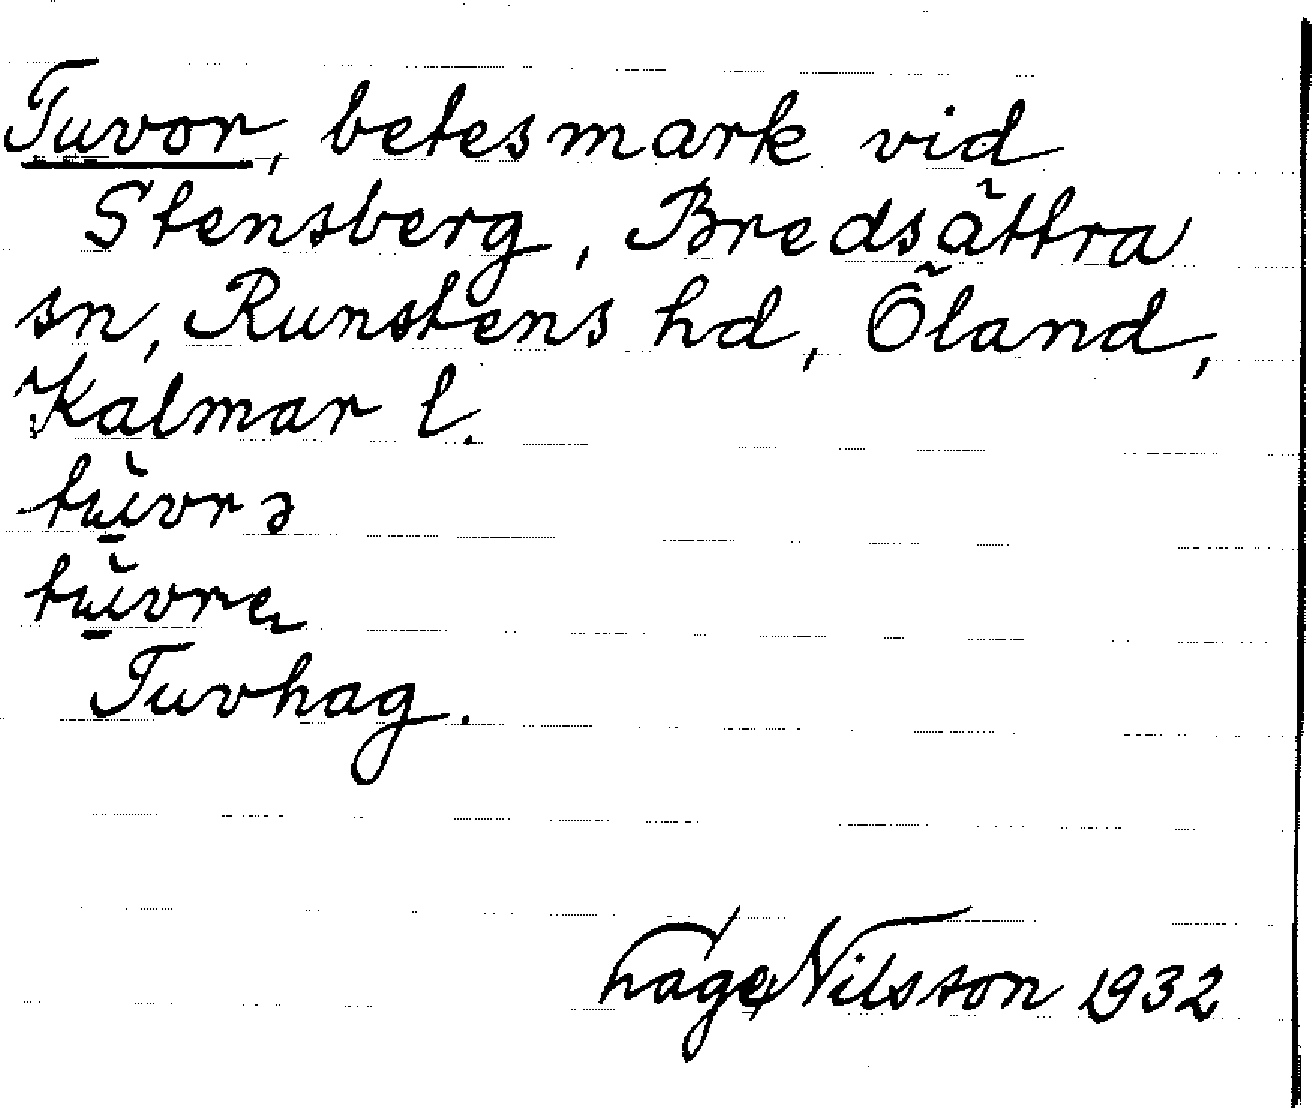 Tuvor, betesmark vid
Stensberg, Bredsättra
sn, Runstens hd, Öland,
Kalmar l.
tu̠̇vrə
tu̠̇vrɐ
Tuvhag.
Hage Nilsson 1932